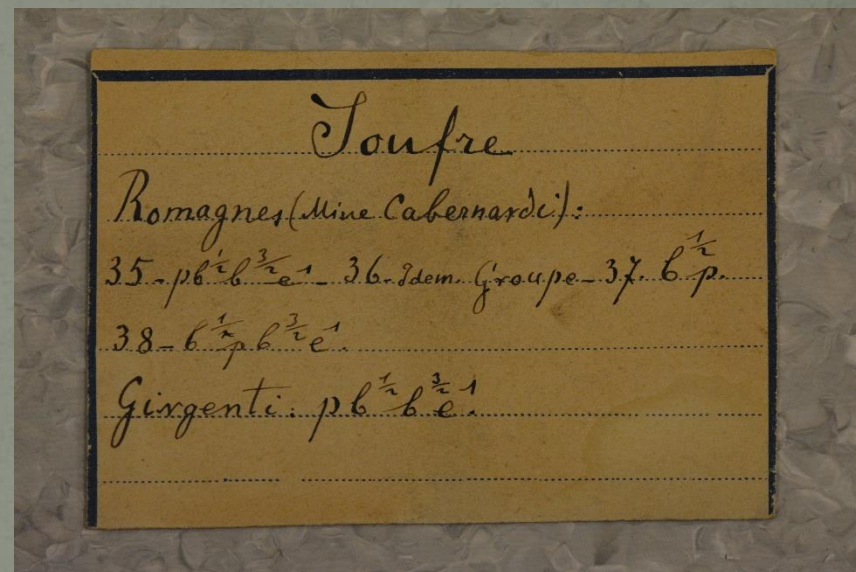 Soufre
Romagnes (Mine Cabernardi):
35 - p b½ b3/2 e1 - 36. Idem. Groupe - 37. b½ p.
38 - b½ p b3/2 e1.
Girgenti: p b½ b3/2 e1.